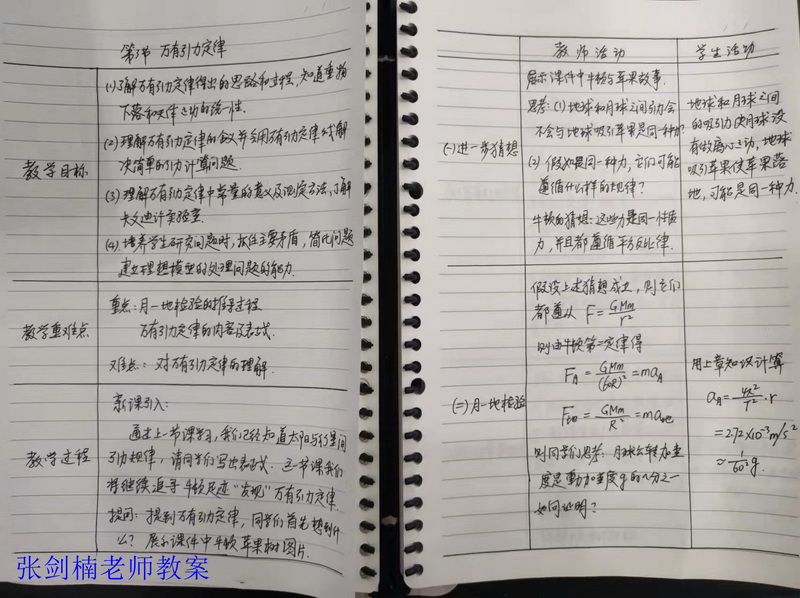 第3节 万有引力定律
教学目标
(1)了解万有引力定律得出的思路和过程,知道重物
下落和天体运动的统一性.
(2)理解万有引力定律的含义并会用万有引力定律求解
决简单的引力计算问题.
(3)理解万有引力定律中常量的意义及测定方法,了解
卡文迪许实验室.
(4)培养学生研究问题时,抓住主要矛盾,简化问题
建立理想模型的处理问题的能力.
教学重难点
重点:月—地检验的推导过程
万有引力定律的内容及表达式.
难点:对万有引力定律的理解.
教学过程
新课引入:
通过上一节课学习,我们已经知道太阳与行星间
引力规律,请同学们写出表达式.这一节课我们
将继续追寻牛顿足迹“发现”万有引力定律.
提问:提到万有引力定律,同学们首先想到什
么?展示课件中牛顿苹果树图片.
张剑楠老师教案
教师活动
学生活动
(一)进一步猜想
展示课件中牛顿与苹果故事.
思考:(1)地球和月球之间引力会
不会与地球吸引苹果是同一种力?
(2)假如是同一种力,它们可能
遵循什么样的规律?
牛顿的猜想:这些力是同一性质
力,并且都遵循平方反比律.
地球和月球之间
的吸引力使月球没
有做离心运动,地球
吸引苹果使苹果落
地,可能是同一种力.
(二)月—地检验
假设上述猜想成立,则它们
都遵从 F=GMm/r²
则由牛顿第二定律得
F月=GMm/(60R)²=ma月
GMm/R²=ma地
则同学们思考:月球公转加速
度是重力加速度g的几分之一
如何证明?
用上章知识计算
a月=4π²/T²·r
=2.72×10⁻³m/s²
≈1/60²g.